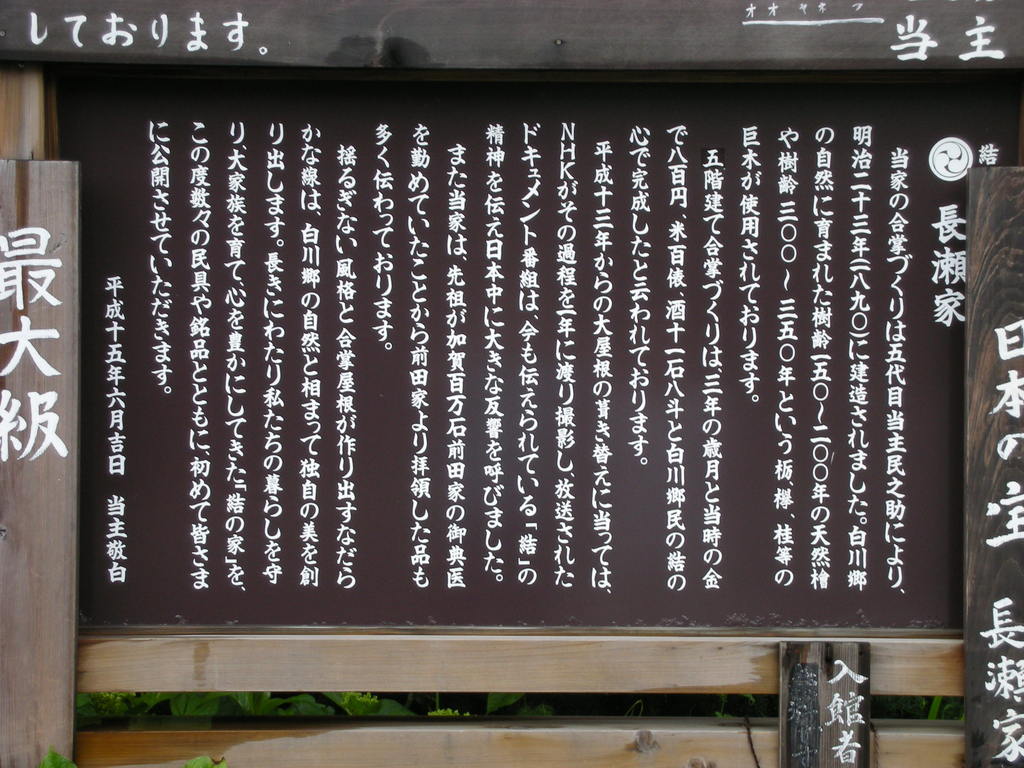 しております。
オオヤネ
当主
結
長瀬家
当家の合掌づくりは五代目当主民之助により、
明治二十三年(一八九〇)に建造されました。白川郷
の自然に育まれた樹齢一五〇〜二〇〇年の天然檜
や樹齢三〇〇〜三五〇年という栃、欅、桂等の
巨木が使用されております。
五階建て合掌づくりは、三年の歳月と当時の金
で八百円、米百俵、酒十一石八斗と白川郷民の結の
心で完成したと云われております。
平成十三年からの大屋根の葺き替えに当っては、
NHKがその過程を一年に渡り撮影し、放送された
ドキュメント番組は、今も伝えられている「結」の
精神を伝え日本中に大きな反響を呼びました。
また当家は、先祖が加賀百万石前田家の御典医
を勤めていたことから前田家より拝領した品も
多く伝わっております。
揺るぎない風格と合掌屋根が作り出すなだら
かな線は、白川郷の自然と相まって独自の美を創
り出します。長きにわたり私たちの暮らしを守
り、大家族を育て、心を豊かにしてきた「結の家」を、
この度数々の民具や銘品とともに、初めて皆さま
に公開させていただきます。
平成十五年六月吉日 当主敬白
日本の宝 長瀬家
最大級
入館者